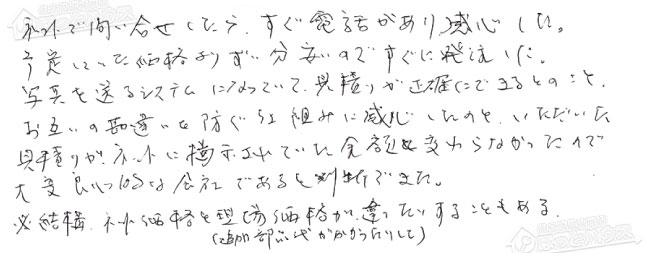 ネットで問い合せしたら、すぐ電話があり感心した。
予定していた価格よりずい分安いのですぐに発注した。
写真を送るシステムになっていて、見積りが正確にできるとのこと、
お互いの勘違いを防ぐ仕組みに感心したのと、いただいた
見積りが、ネットに掲示されていた金額と変わらなかったので
大変良心的な会社であると判断できた。
※結構、ネット価格と現場価格が、違ったりすることもある。
(追加部品代がかかったりして)